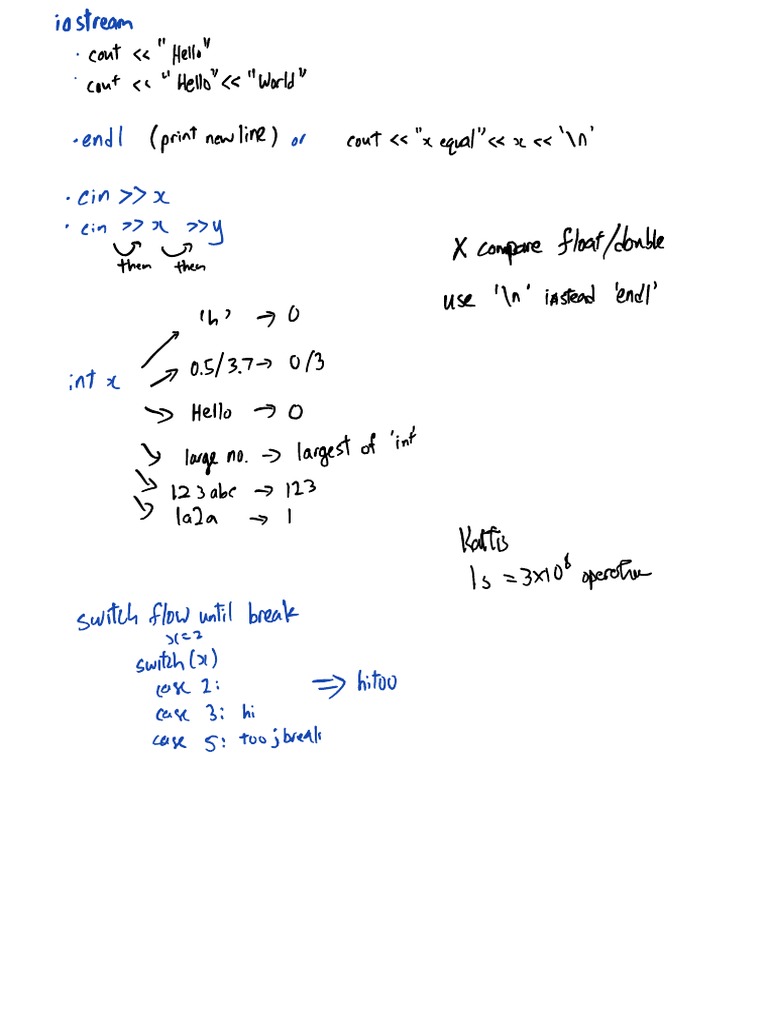 iostream
· cout << "Hello"
· cout << "Hello" << "World"
· endl (print new line) or cout << "x equal" << x << '\n'
· cin >> x
· cin >> x >> y
then then
X compare float/double
use '\n' instead 'endl'
int x
'h' → 0
0.5/3.7 → 0/3
Hello → 0
large no. → largest of 'int'
123abc → 123
1a2a → 1
Kattis
1s = 3×10⁸ operation
switch flow until break
x=2
switch(x)
case 2:
case 3: hi
case 5: too; break
⇒ hitoo